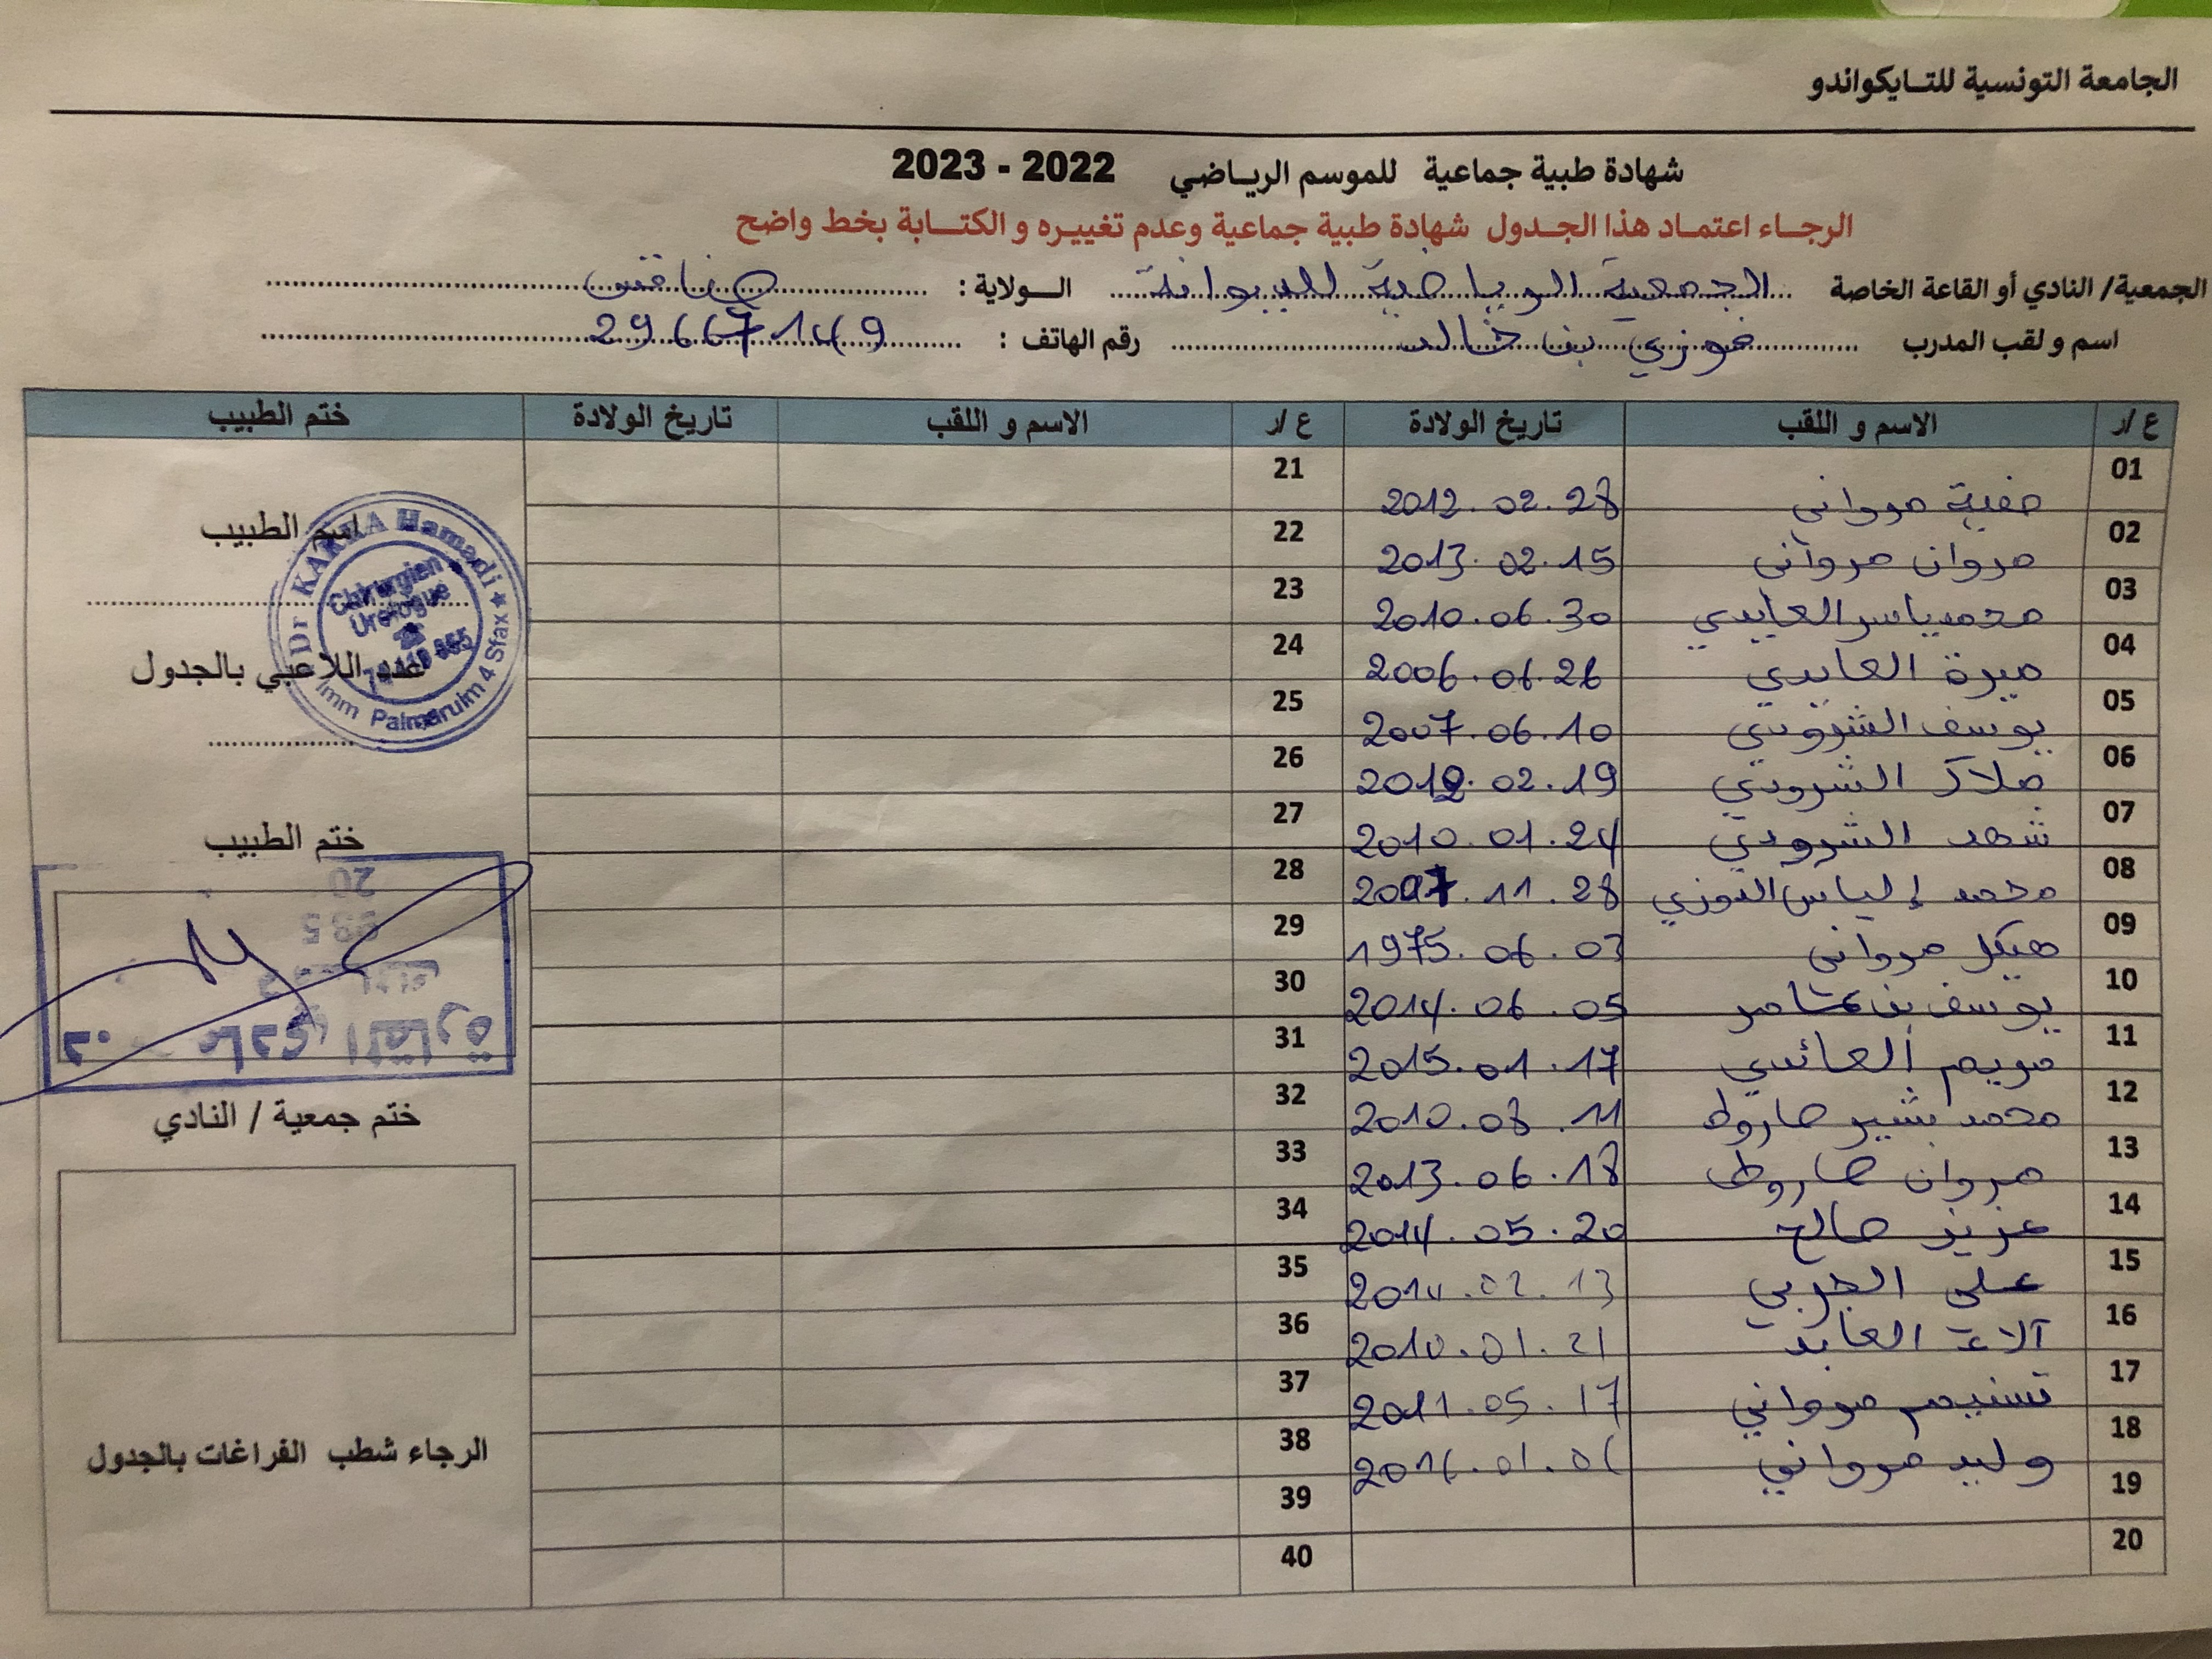 الجامعة التونسية للتـايكواندو
شهادة طبية جماعية للموسم الرياضي 2022 - 2023
الرجـاء اعتمـاد هذا الجـدول شهادة طبية جماعية وعدم تغييـره و الكتـابة بخط واضح
الجمعية/ النادي أو القاعة الخاصة الجمعية الرياضية للببوانة الـولاية : صفاقس
اسم و لقب المدرب فوزي بن خالد رقم الهاتف : 29667149
ع/ر الاسم و اللقب تاريخ الولادة ع/ر الاسم و اللقب تاريخ الولادة ختم الطبيب
01 صفية مرواني 2012.02.28 21
02 مروان مرواني 2013.02.15 22
03 محمد ياسر العايدي 2010.06.30 23
04 ميرة العايدي 2006.06.26 24
05 يوسف الشرودي 2007.06.10 25
06 ملاك الشرودي 2012.02.19 26
07 شهد الشرودي 2010.01.24 27
08 محمد إلياس اللوزي 2007.11.28 28
09 هيكل مرواني 1975.06.03 29
10 يوسف بن عامر 2014.06.05 30
11 مريم العائدي 2015.01.17 31
12 محمد بشير صاروط 2010.08.11 32
13 مروان صاروط 2013.06.18 33
14 عزيز صالح 2014.05.20 34
15 علي الجربي 35
16 آلاء العابد 2010.01.21 36
17 تسنيم مرواني 2011.05.17 37
18 وليد مرواني 38
19 39
20 40
اسم الطبيب
Dr KARRA Hamadi
Chirurgien
Urologue
Imm Palmarium 4 Sfax
عدد اللاعبي بالجدول
ختم الطبيب
د. حمادي القارة
ختم جمعية / النادي
الرجاء شطب الفراغات بالجدول